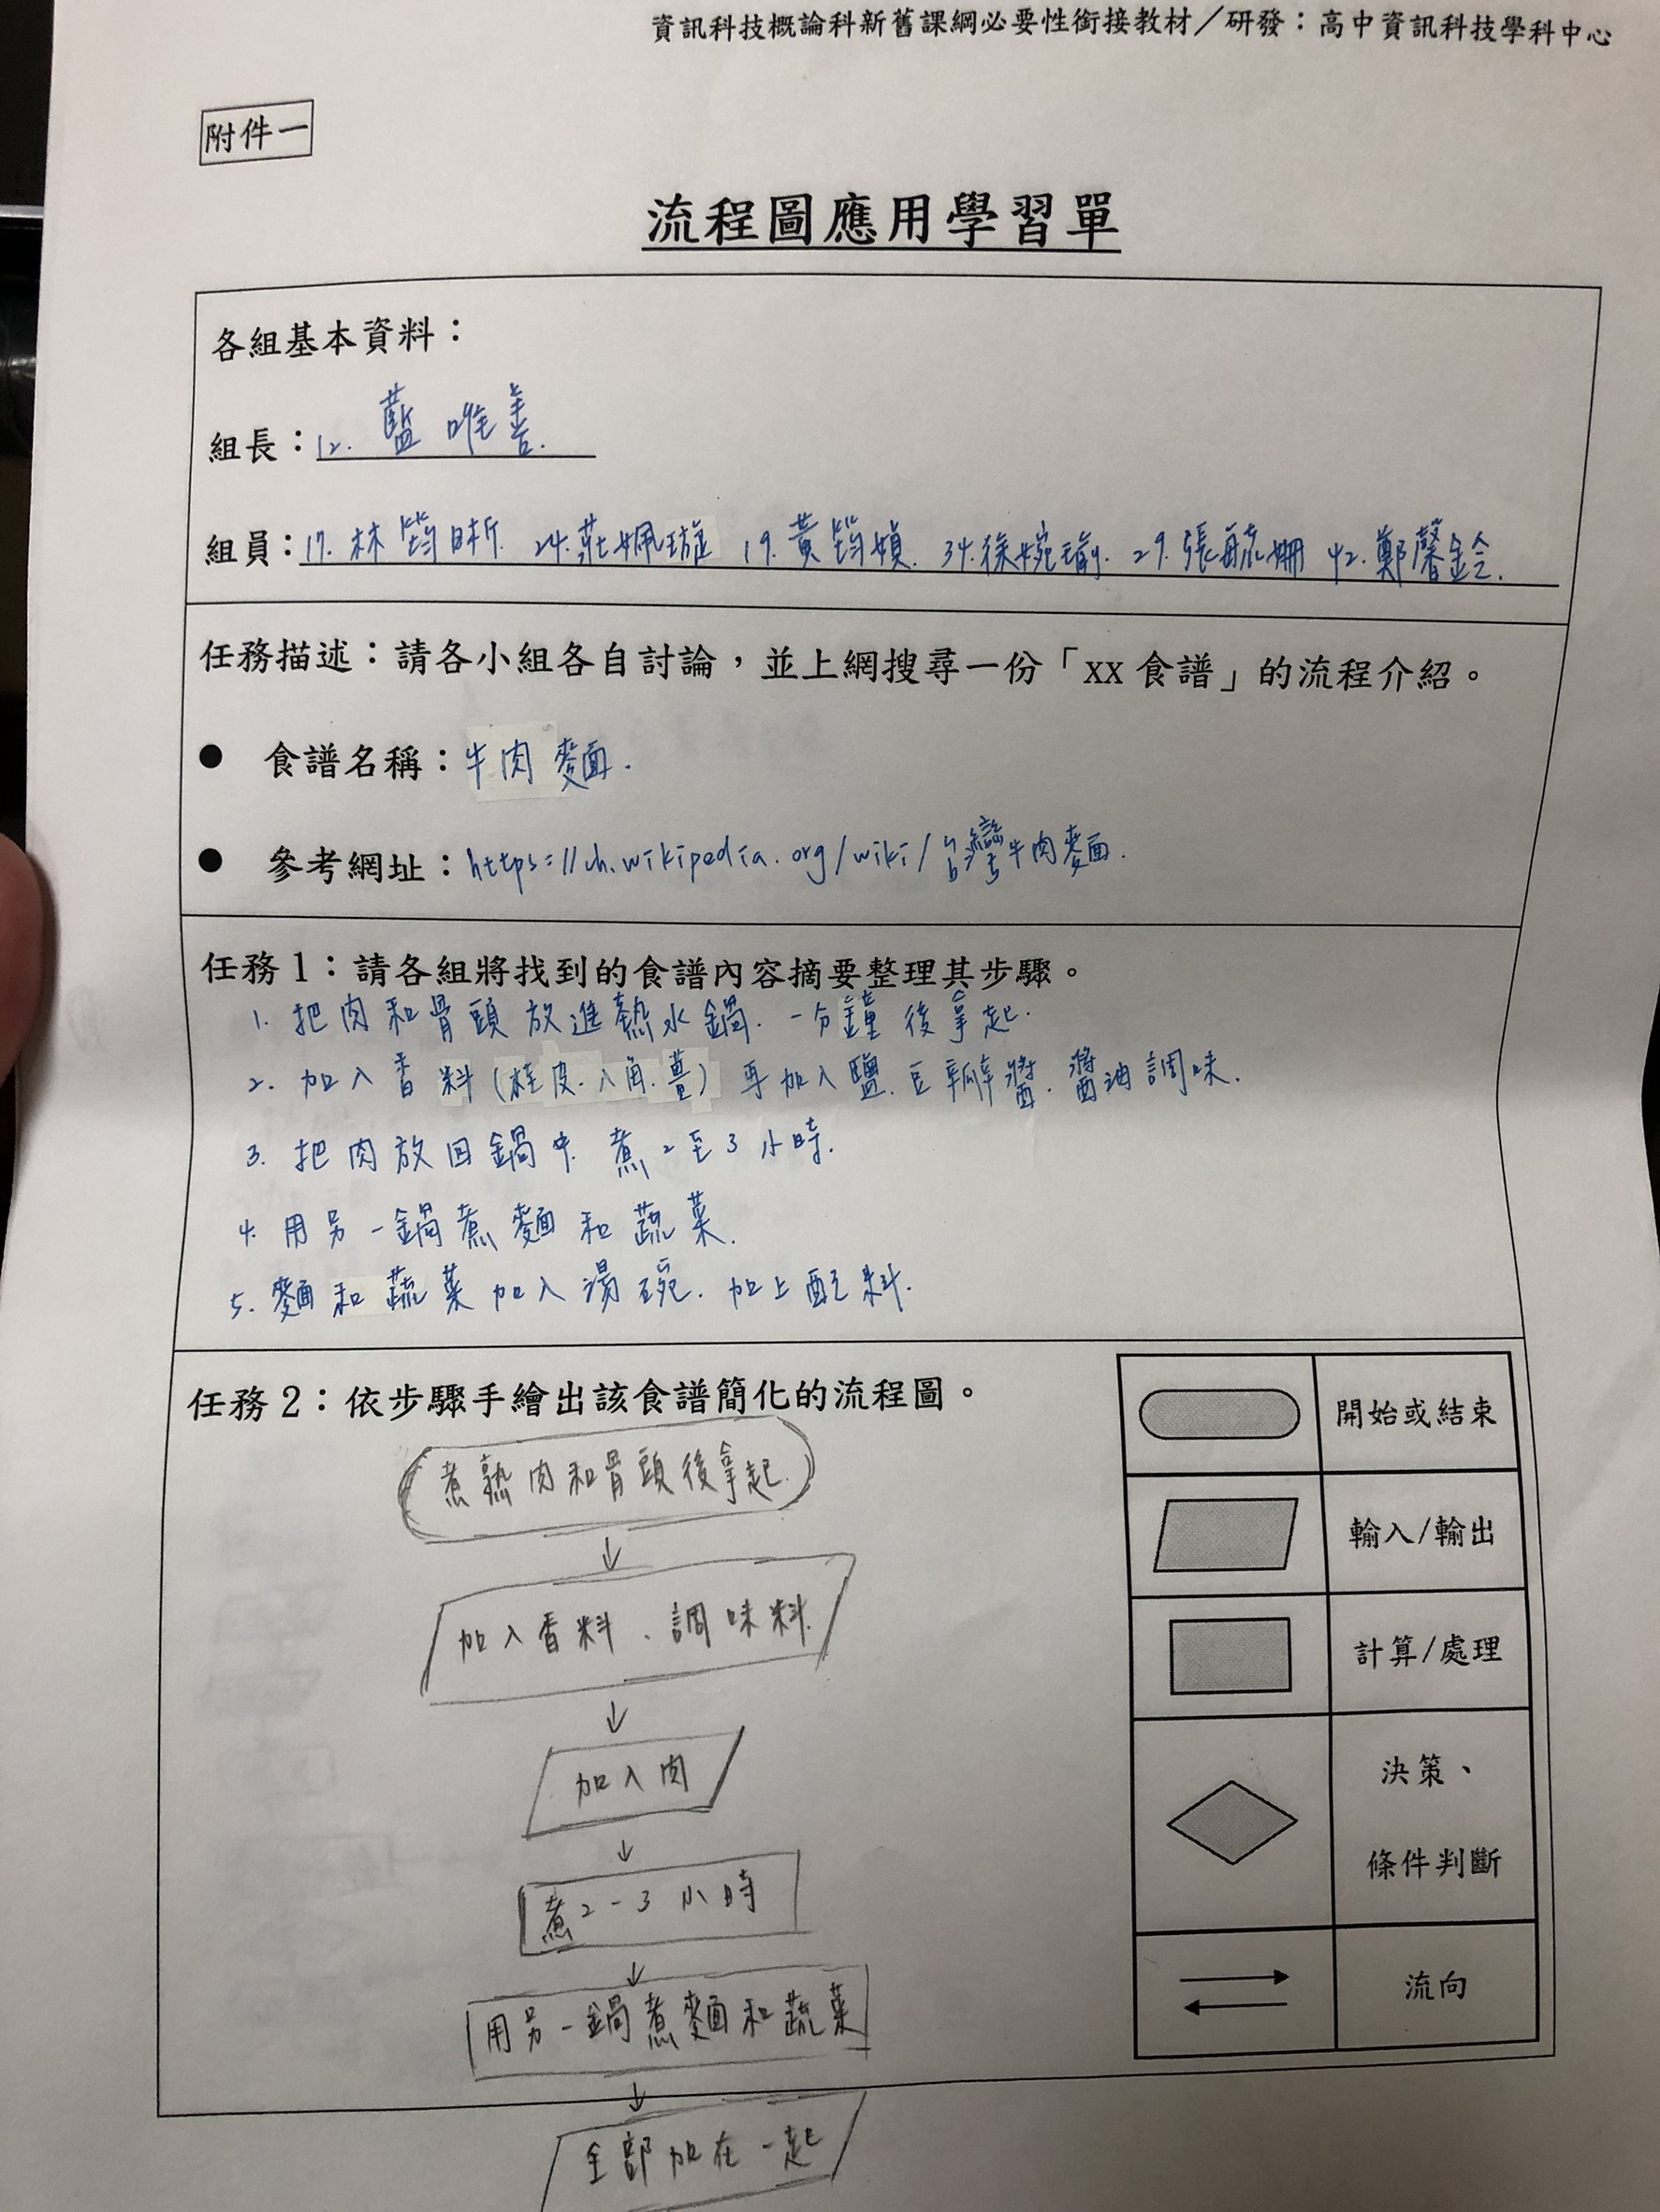 資訊科技概論科新舊課綱必要性銜接教材／研發：高中資訊科技學科中心
附件一
流程圖應用學習單
各組基本資料：
組長：12. 藍唯善.
組員：17. 林筠昕. 24. 莊姵璇 19. 黃筠媜. 34. 徐婉瑜. 29. 張毓姍 42. 鄭馨鈴.
任務描述：請各小組各自討論，並上網搜尋一份「XX 食譜」的流程介紹。
● 食譜名稱：牛肉麵.
● 參考網址：https://ch.wikipedia.org/wiki/台灣牛肉麵.
任務 1：請各組將找到的食譜內容摘要整理其步驟。
1. 把肉和骨頭放進熱水鍋. 一分鐘後拿起.
2. 加入香料(桂皮.八角.薑) 再加入鹽.豆瓣醬.醬油調味.
3. 把肉放回鍋中. 煮2至3小時.
4. 用另一鍋煮麵和蔬菜.
5. 麵和蔬菜加入湯碗. 加上配料.
任務 2：依步驟手繪出該食譜簡化的流程圖。
煮熟肉和骨頭後拿起.
↓
加入香料、調味料.
↓
加入肉
↓
煮2-3小時
↓
用另一鍋煮麵和蔬菜
↓
全部加在一起
開始或結束
輸入/輸出
計算/處理
決策、
條件判斷
流向